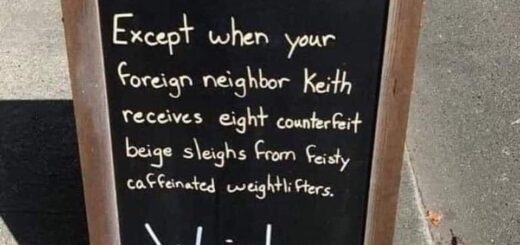 Except when your
foreign neighbor Keith
receives eight counterfeit
beige sleighs from feisty
caffeinated weightlifters.